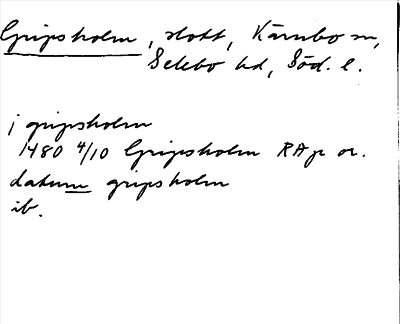 Gripsholm, slott, Kärnbo sn,
Selebo hd, Söd. l.
j gripsholm
1480 4/10 Gripsholm RAp or.
datum gripsholm
ib.